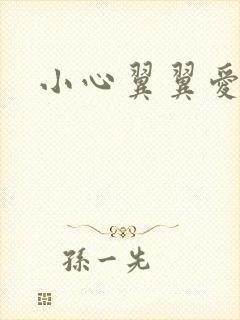 小心翼翼愛
孫一先